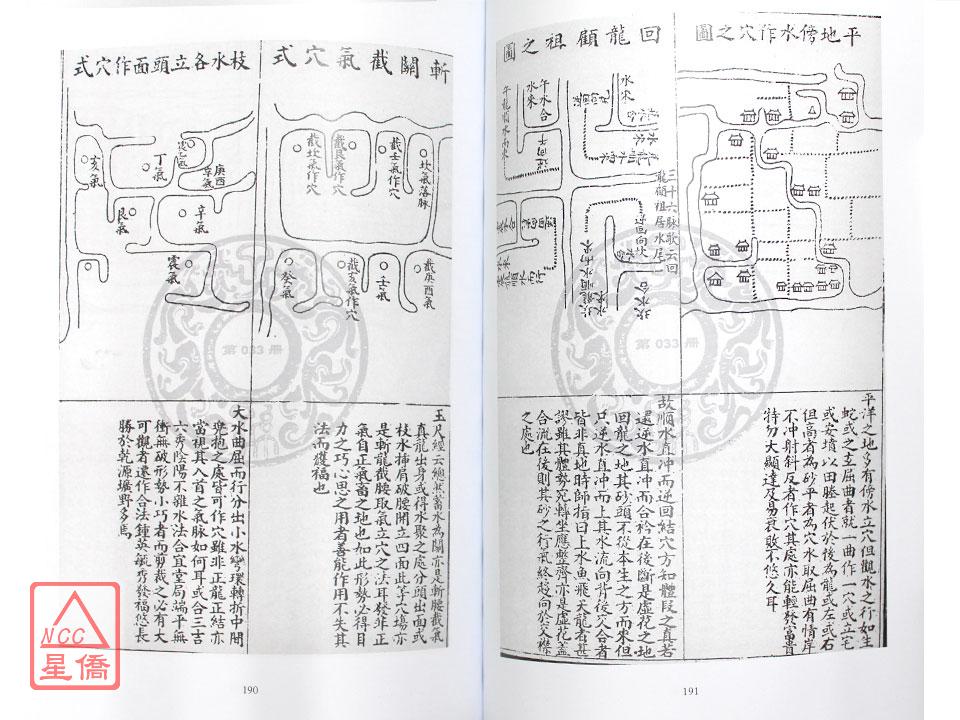 平地傍水作穴之圖
平洋之地多有傍水立穴但觀水之行如生
蛇或之玄屈曲者就一曲作一穴或立宅
或安墳以田塍起伏於後為龍或左或右
但高者為砂平者為穴水取屈曲有情岸
不冲射斜反者作穴其處亦能輕發富貴
特勿大顯達及易衰敗不悠久耳
回龍顧祖之圖
三十六脉歌云回
龍顧祖居水尾
水來
午水合
水來
午龍順水而來
故順水直冲而逆回結穴方如體段之真若
還逆水直冲而合衿在後斷是虛花之地
回龍之地其砂頭不從本生之方而來但
只逆水直冲而上其水流向背後交合者
皆非真地時師指曰上水魚飛天龍者甚
謬雖其體勢宛轉坐應整齊亦是虛花蓋
合流在後則其砂之行氣終趨向於交襟
之處也
斬關截氣穴式
坎氣落脉
截壬氣作穴
截艮氣作穴
截坎氣作穴
截庚酉氣
壬氣
截亥氣作穴
癸氣
玉尺經云總然蓄水為關亦是斬腰截氣
真龍出身或得水聚之處分頭出面或
枝水插肩破腰開立四面此等穴場亦
是斬龍截腰取氣立穴之法耳發非正
氣自正氣蓄之地也如此形勢必得目
力之巧心思之用者善能作用不失其
法而獲福也
枝水各立頭面作穴式
庚酉
辛氣
丁氣
亥氣
辛氣
艮氣
震氣
大水曲屈而行分出小水彎環轉折中間
兜抱之處皆可作穴雖非正龍正結亦
當視其入首之氣脉如何耳或合三吉
六秀陰陽不雜水法合宜堂局端平無
衝無破形勢小巧者而剪裁之必有大
可觀者還作合法鍾英毓秀發福悠長
勝於乾源壙野多焉
第 033 冊
第 033 冊
NCC
星僑
190
191